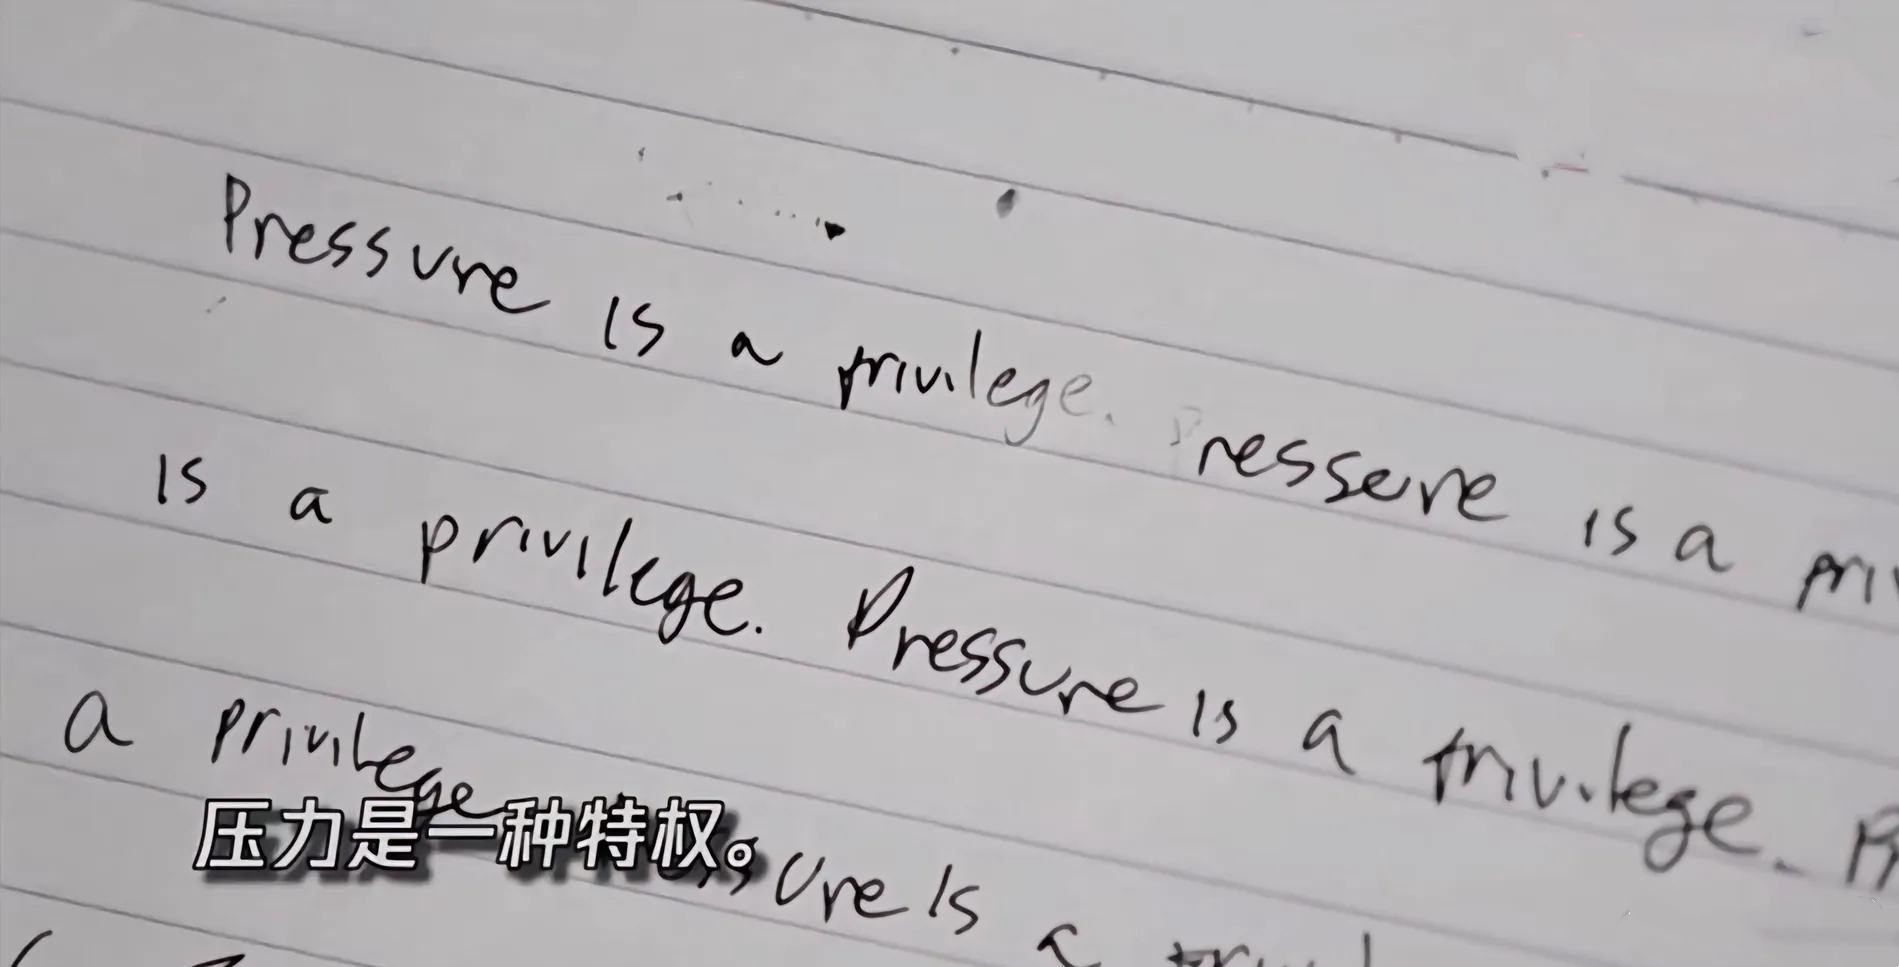 Pressure is a privilege. Pressure is a
is a privilege. Pressure is a privilege.
a privilege
压力是一种特权。
is a